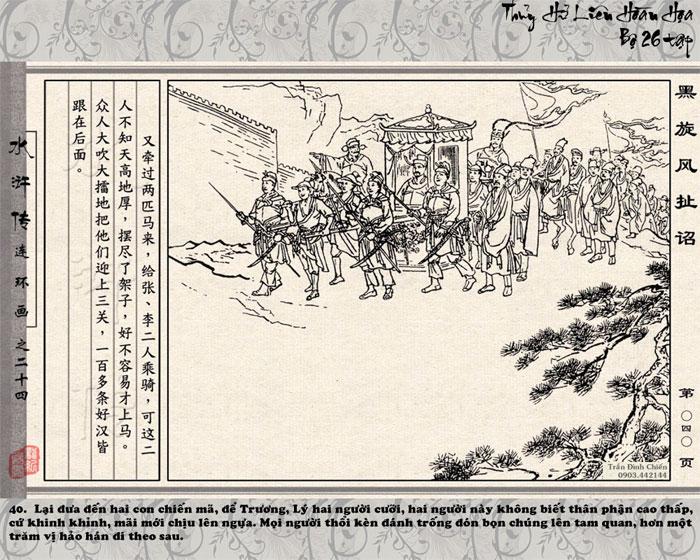 Thủy Hử Liên Hoàn Họa
Bộ 26 tập
黑旋风扯诏
又牵过两匹马来，给张、李二人乘骑，可这二
人不知天高地厚，摆尽了架子，好不容易才上马。
众人大吹大擂地把他们迎上三关，一百多条好汉皆
跟在后面。
水浒传连环画之二十四
第〇四〇页
Trần Đình Chiến
0903.442144
40. Lại đưa đến hai con chiến mã, để Trương, Lý hai người cưỡi, hai người này không biết thân phận cao thấp,
cứ khinh khỉnh, mãi mới chịu lên ngựa. Mọi người thổi kèn đánh trống đón bọn chúng lên tam quan, hơn một
trăm vị hảo hán đi theo sau.